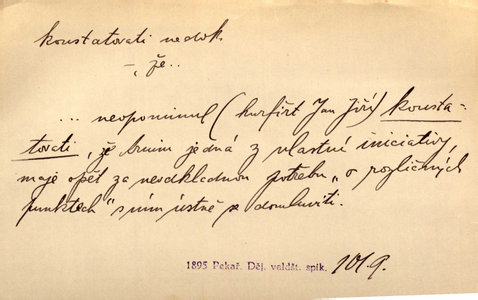 konstatovati nedok.
–, že..
... neopominul (kurfiřt Jan Jiří) konsta-
tovati, že Arnim jedná z vlastní iniciativy,
maje opět za neodkladnou potřebu „o rozličných
punktech“ s ním ústně se domluviti.
1895 Pekař. Děj. valdšt. spik. 101 9.